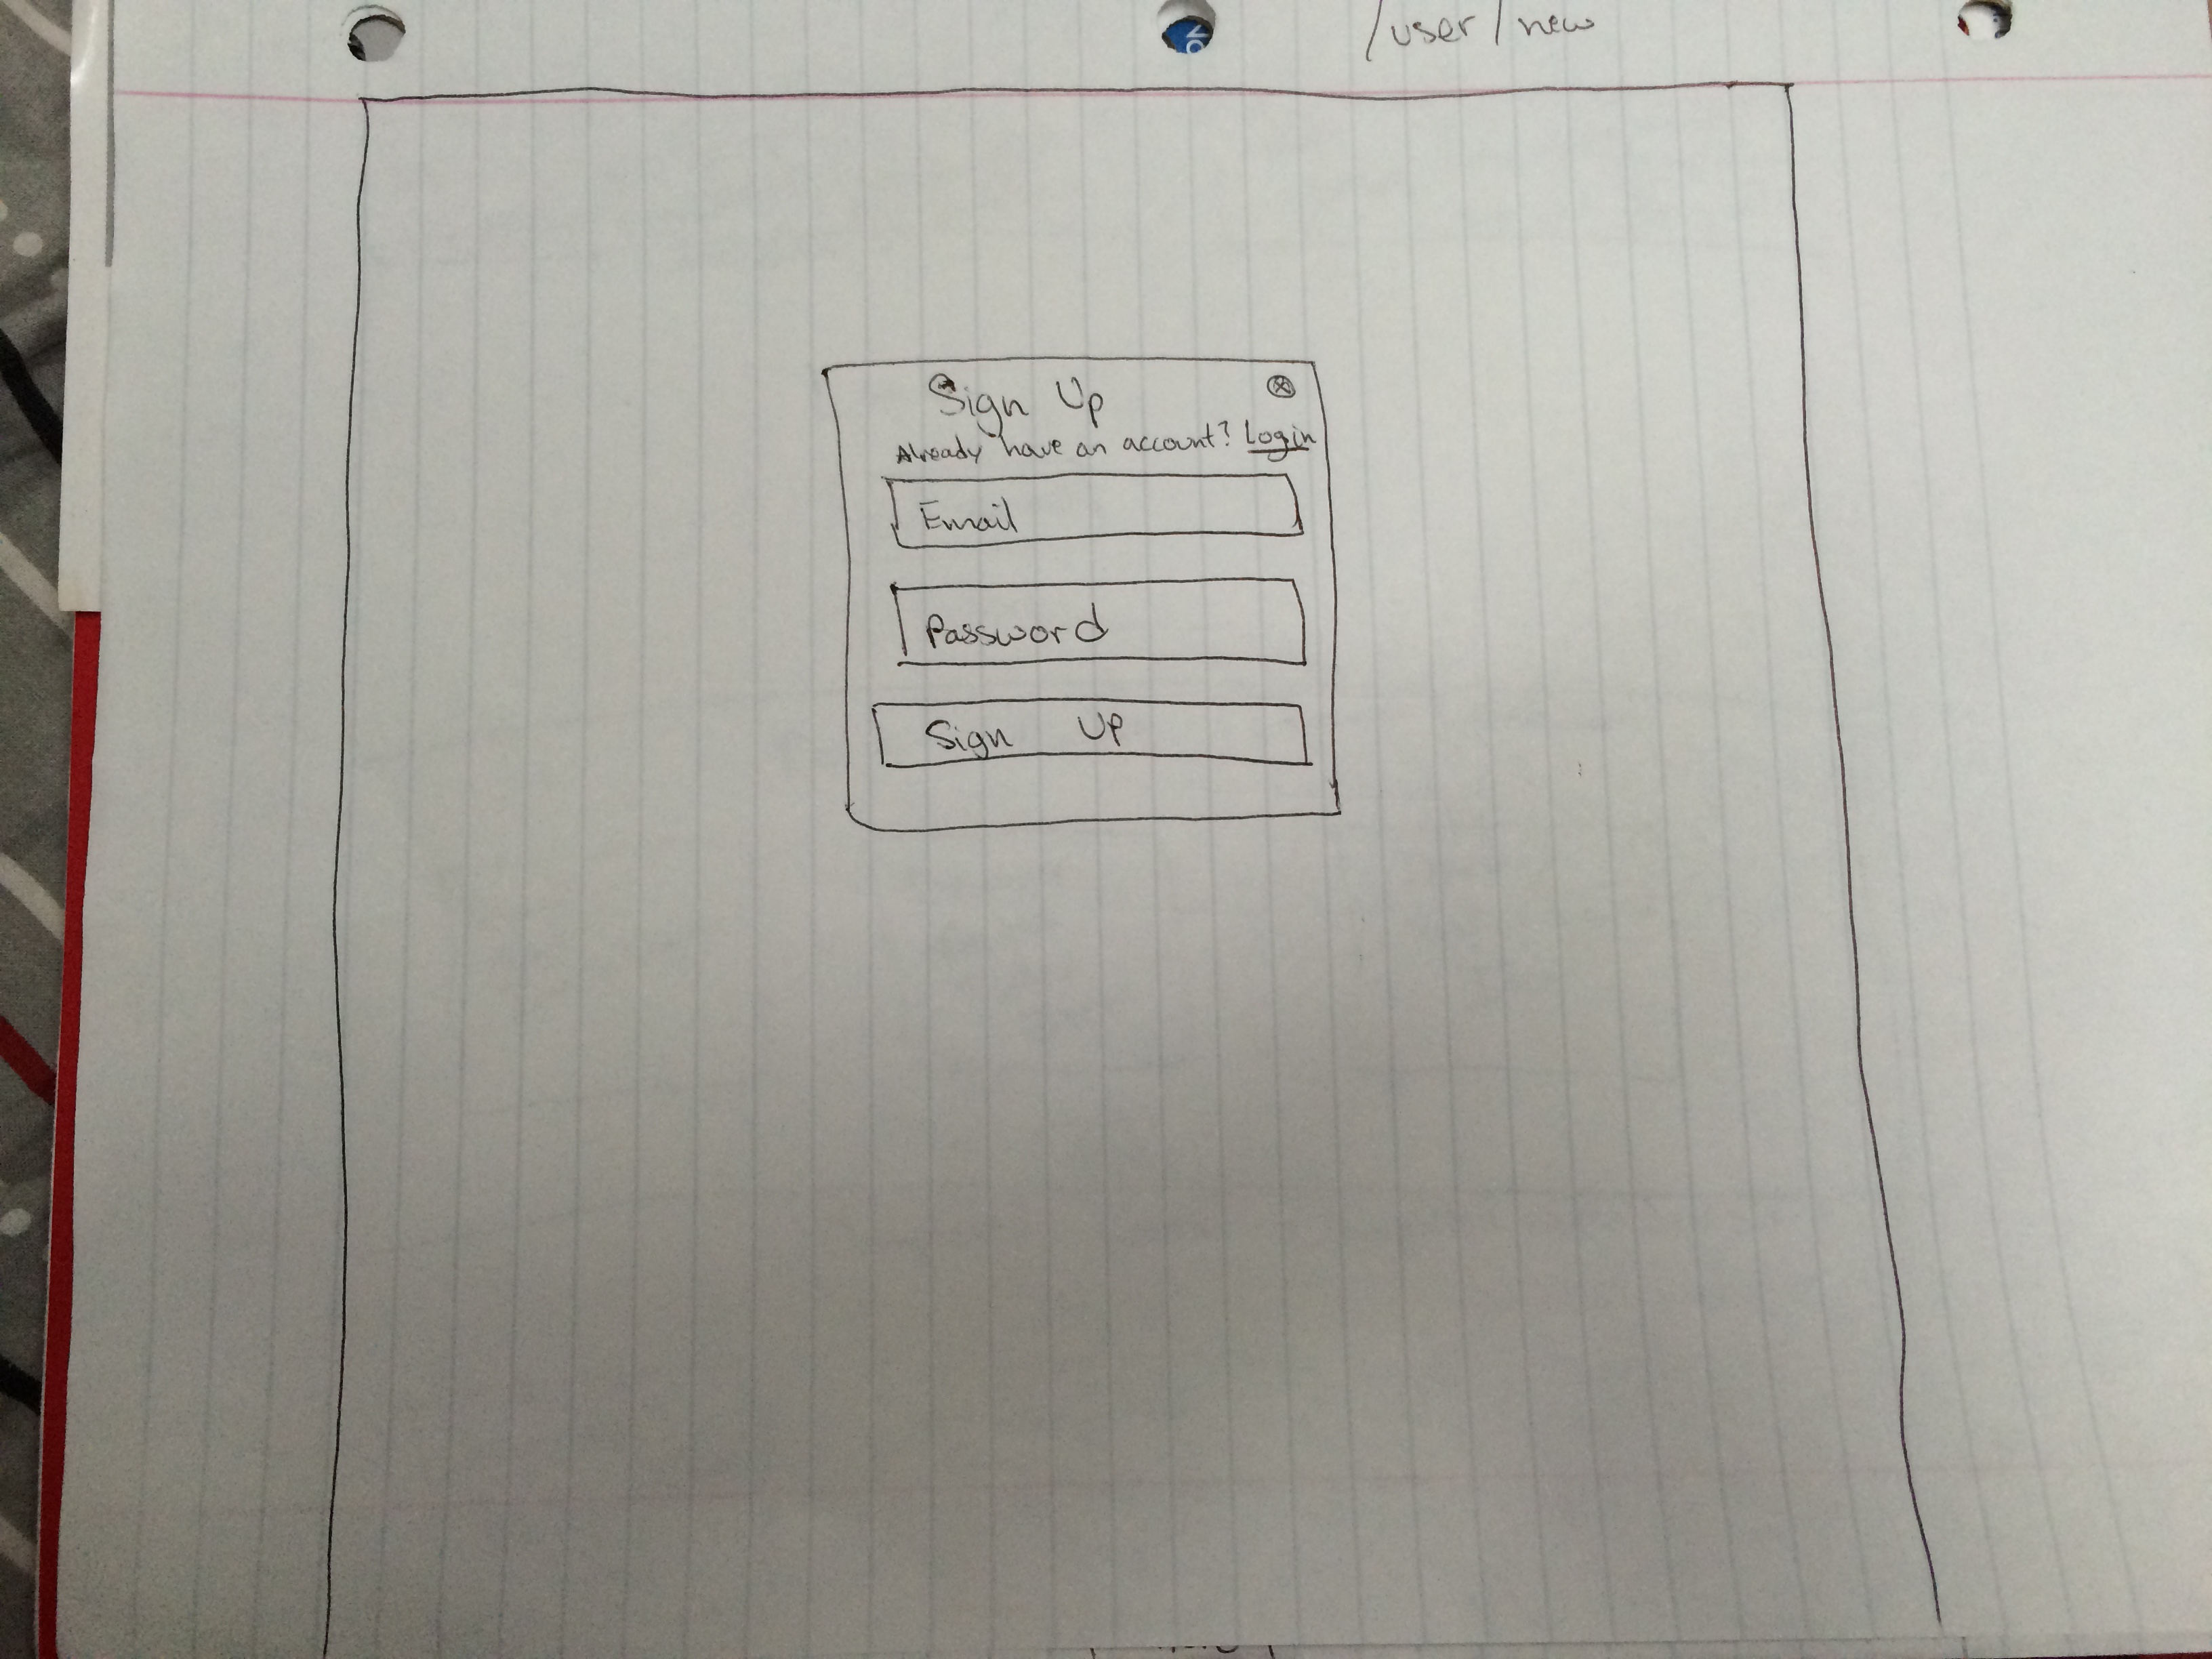 /user/new
Sign Up
Already have an account? Login
Email
Password
Sign Up